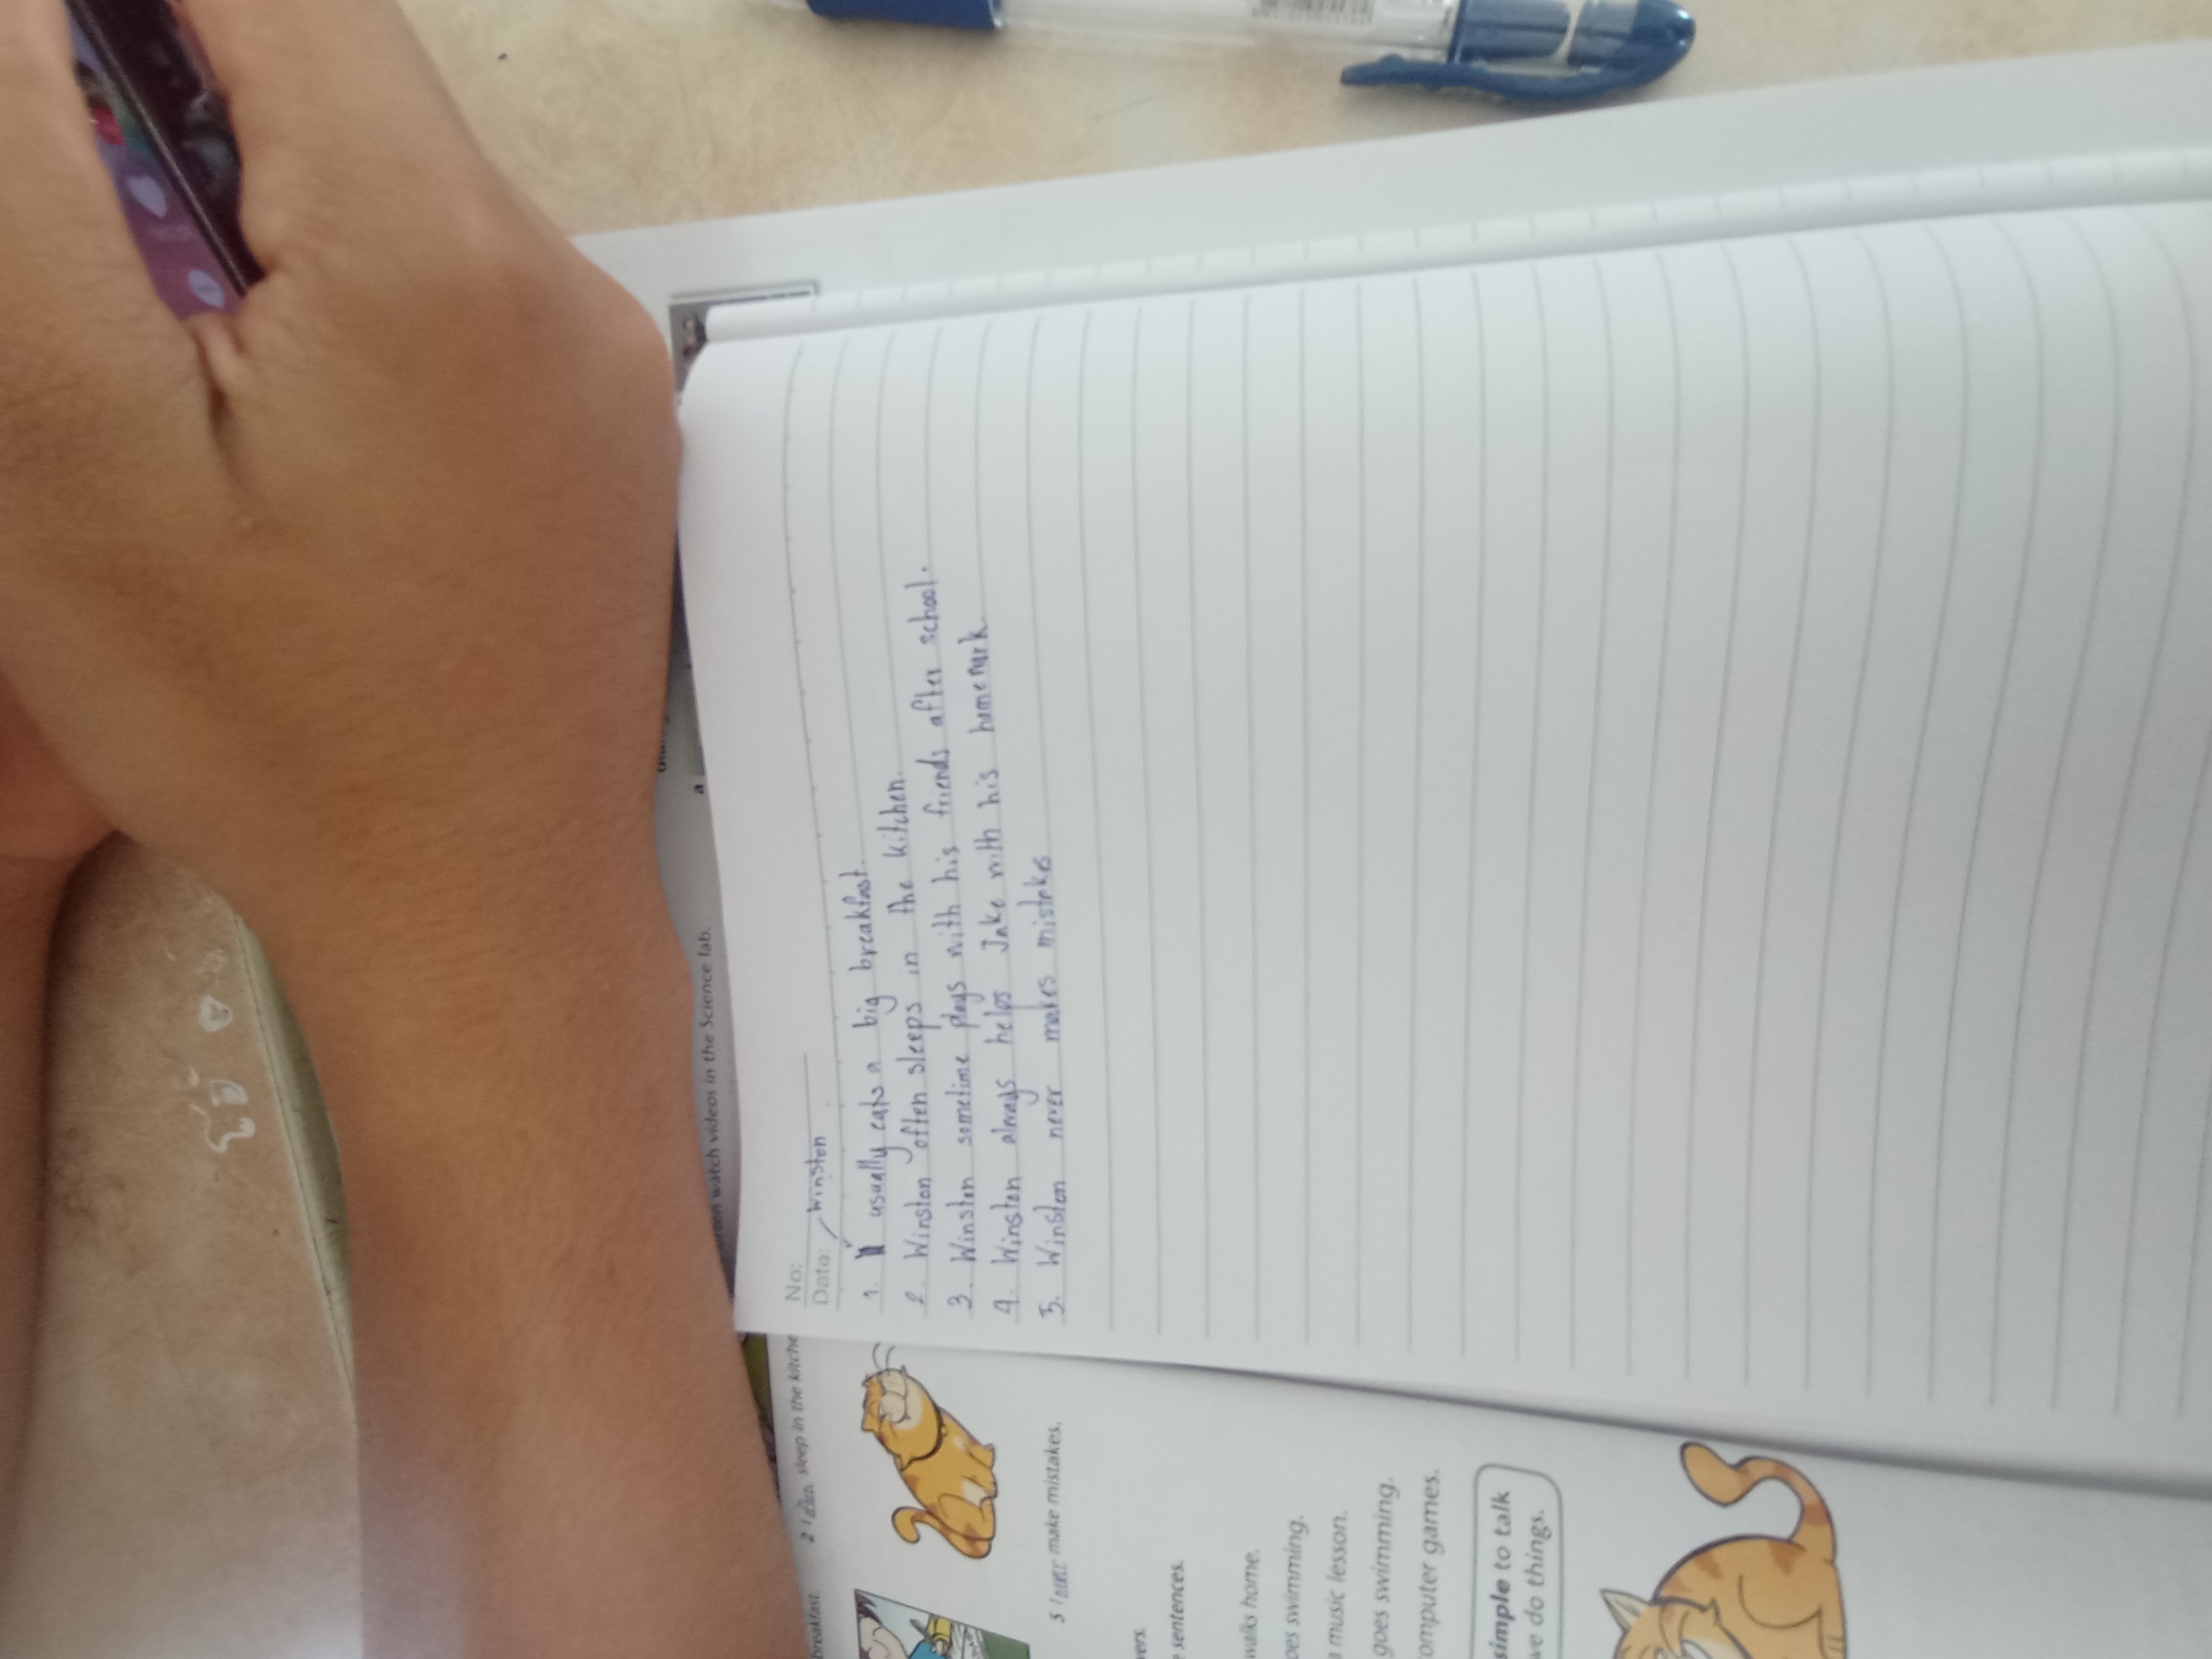 โอ๊
watch videos in the Science lab.
a
breakfast.
2 I often sleep in the kitche
5 I never make mistakes.
vers.
e sentences.
walks home.
oes swimming.
a music lesson.
goes swimming.
omputer games.
simple to talk
we do things.
No:
Date:
Winston
1. usually eats a big breakfast.
2. Winston often sleeps in the kitchen.
3. Winston sometime plays with his friends after school.
4. Winston always helps Jake with his homework.
5. Winston never makes mistakes